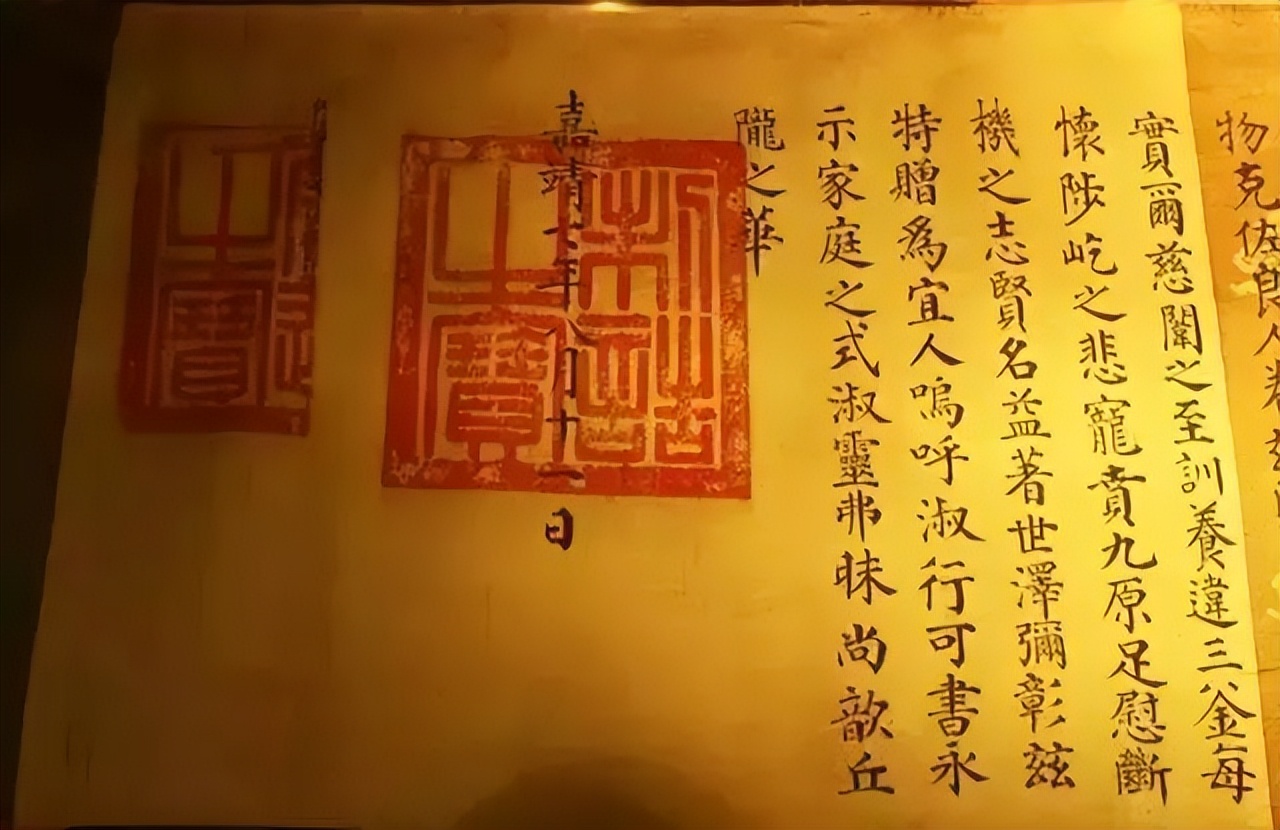 物克佐
實爾慈闈之至訓養違三釜每
懷陟屺之悲寵賁九原足慰斷
機之志賢名益著世澤彌彰茲
特贈爲宜人嗚呼淑行可書永
示家庭之式淑靈弗昧尚歆丘
隴之華
嘉靖七年八月十一日
制誥之寶
之寶